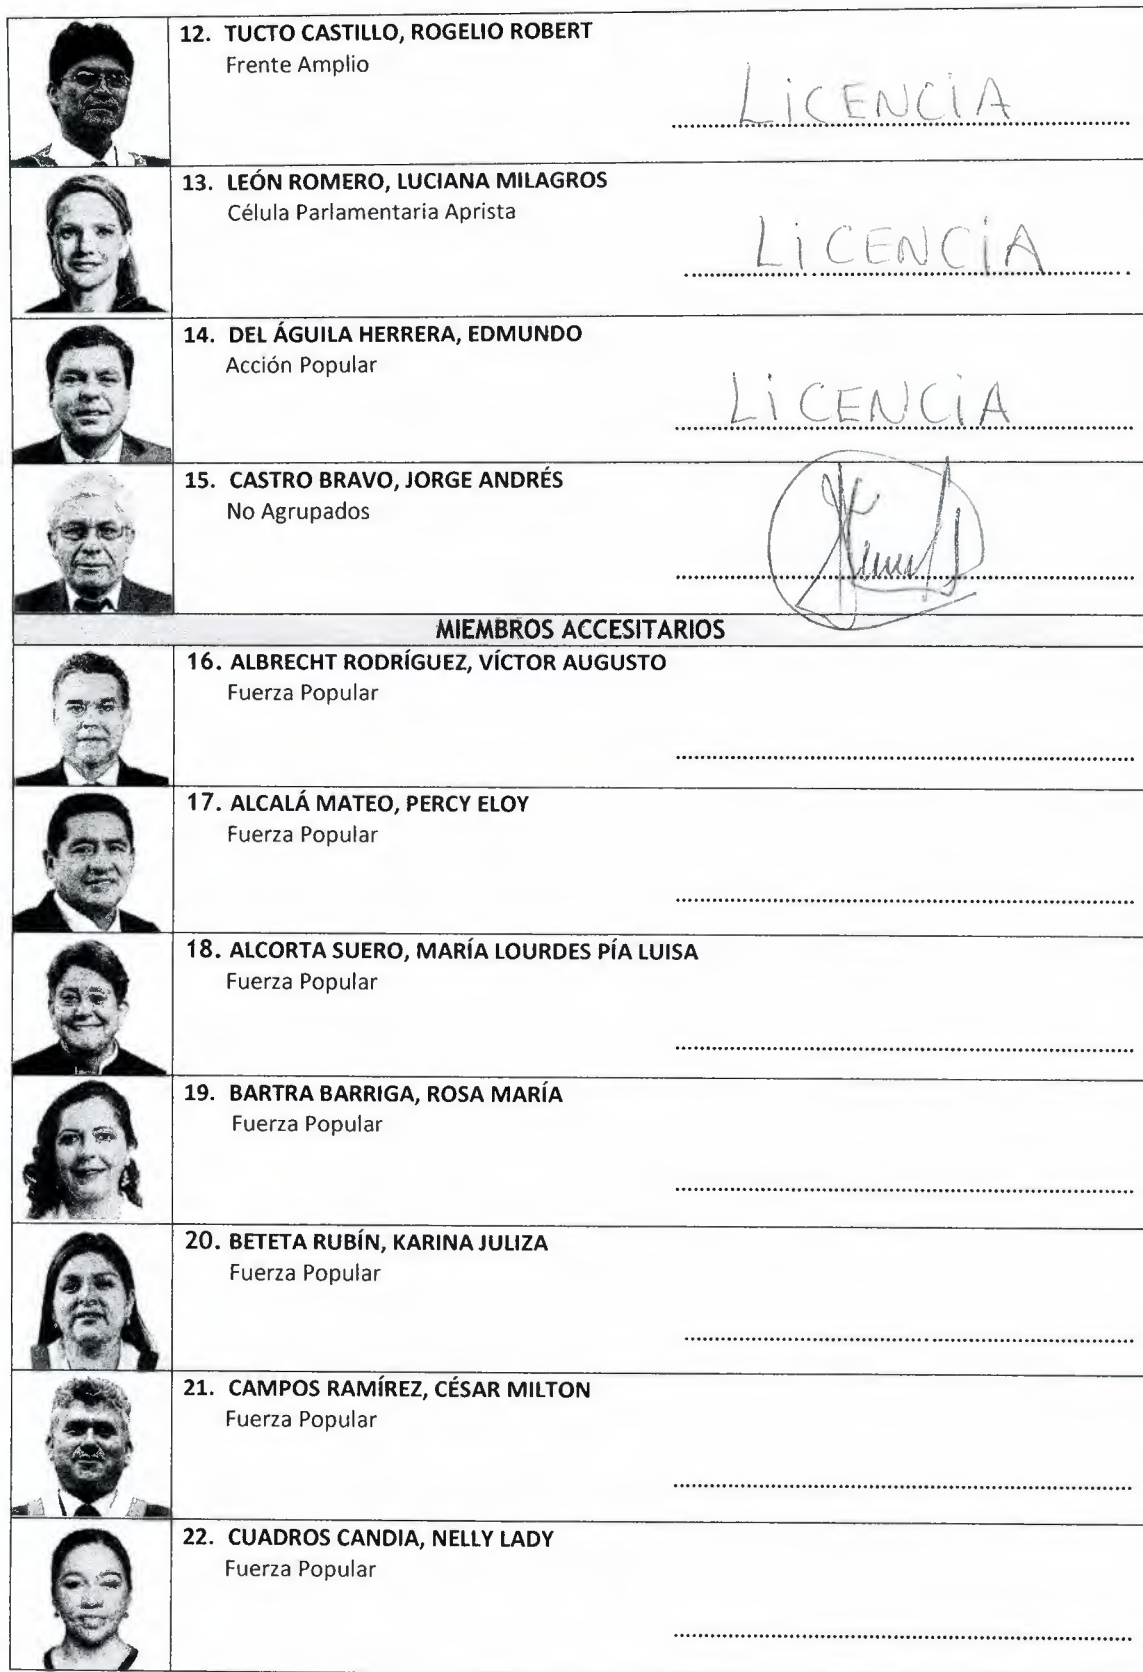 12. TUCTO CASTILLO, ROGELIO ROBERT
Frente Amplio
LiCENCiA
13. LEÓN ROMERO, LUCIANA MILAGROS
Célula Parlamentaria Aprista
LiCENCiA
14. DEL ÁGUILA HERRERA, EDMUNDO
Acción Popular
LiCENCiA
15. CASTRO BRAVO, JORGE ANDRÉS
No Agrupados
MIEMBROS ACCESITARIOS
16. ALBRECHT RODRÍGUEZ, VÍCTOR AUGUSTO
Fuerza Popular
17. ALCALÁ MATEO, PERCY ELOY
Fuerza Popular
18. ALCORTA SUERO, MARÍA LOURDES PÍA LUISA
Fuerza Popular
19. BARTRA BARRIGA, ROSA MARÍA
Fuerza Popular
20. BETETA RUBÍN, KARINA JULIZA
Fuerza Popular
21. CAMPOS RAMÍREZ, CÉSAR MILTON
Fuerza Popular
22. CUADROS CANDIA, NELLY LADY
Fuerza Popular